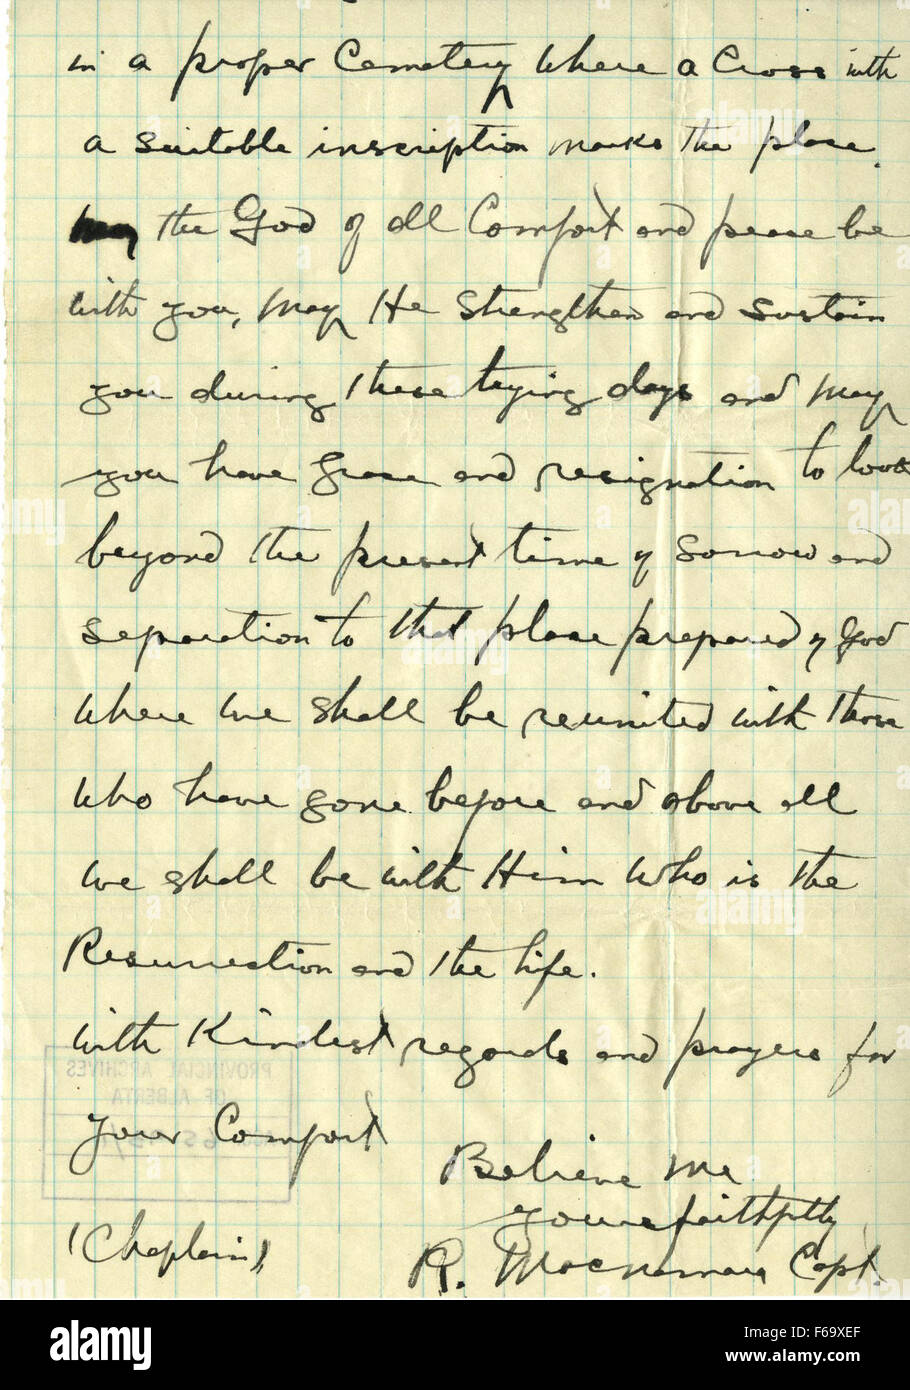 in a proper Cemetery where a Cross with
a suitable inscription marks the place.
May the God of all Comfort and peace be
with you, May He strengthen and sustain
you during these trying days and may
you have grace and resignation to look
beyond the present time of sorrow and
separation to that place prepared of God
where we shall be reunited with those
who have gone before and above all
we shall be with Him who is the
Resurrection and the life.
With Kindest regards and prayers for
your Comfort
Believe me
yours faithfully
(Chaplain) R. Macnamara Capt.
PROVINCIAL ARCHIVES
OF ALBERTA
alamy
Image ID: F69XEF
www.alamy.com